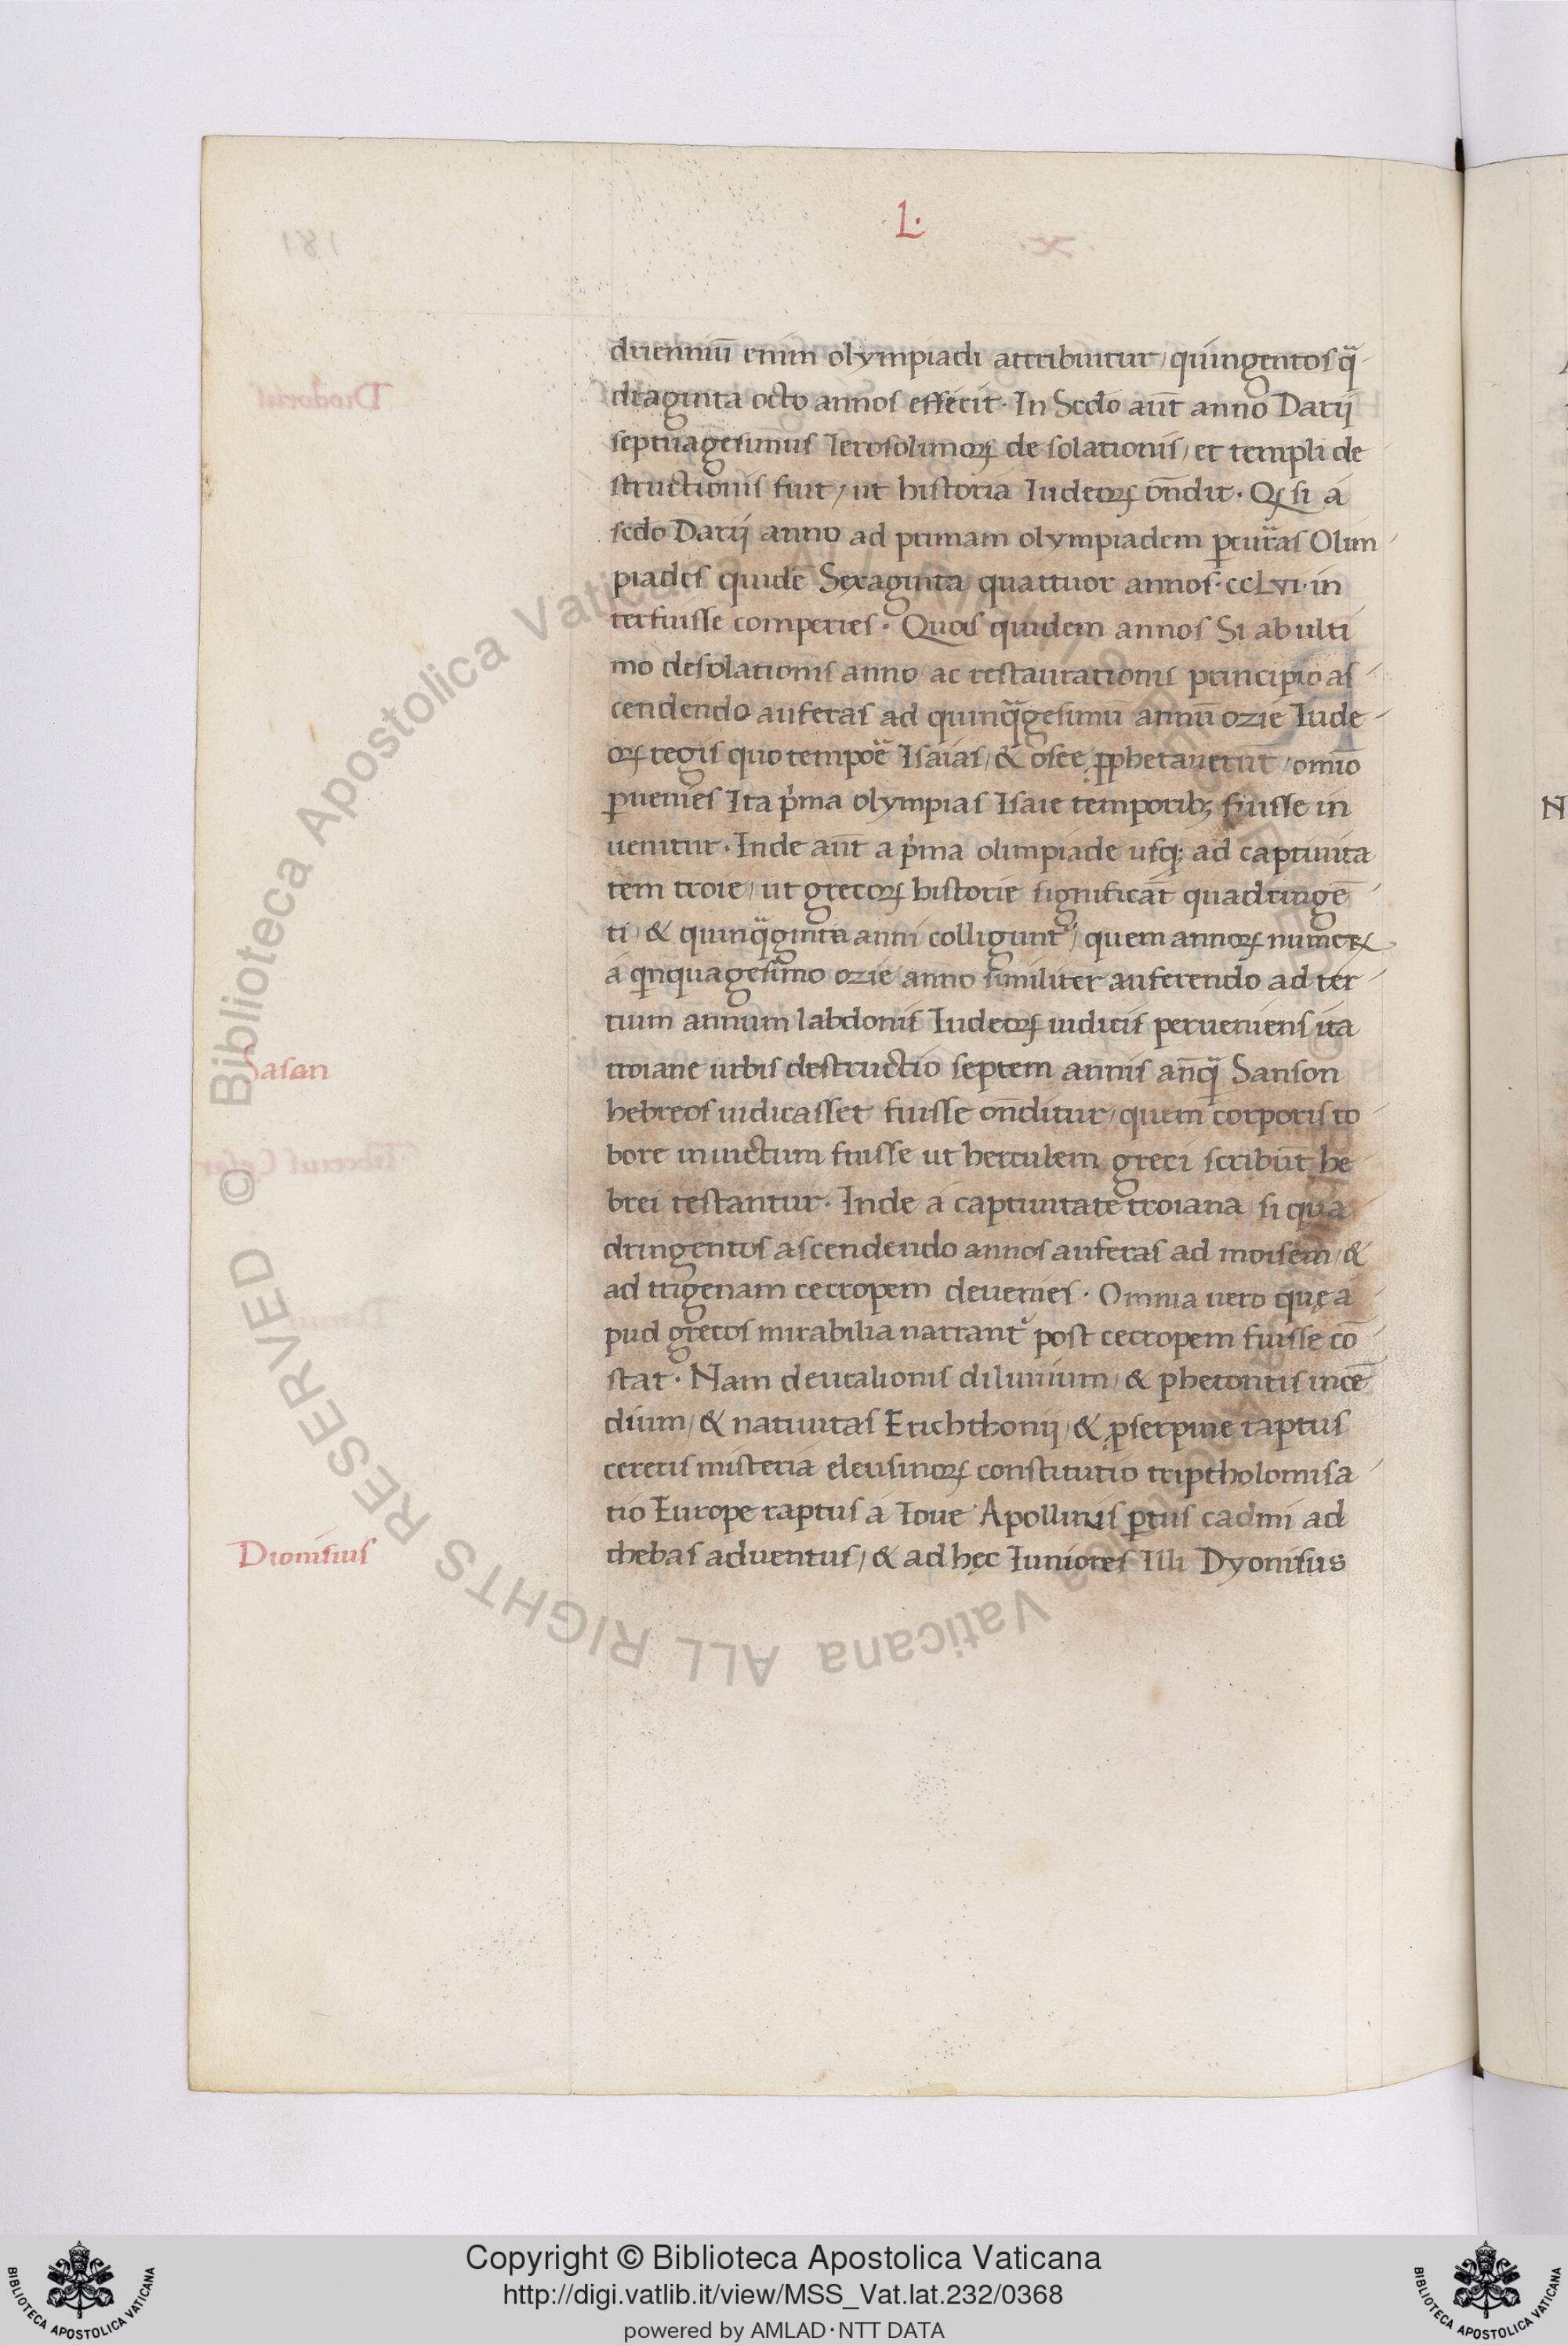 L.
druenniū enim olympiadi attribuitur / quingentos q̄
draginta octo annos effecit · In Scdo aūt anno Darij
septuagesimus Ierosolimoꝝ de solationis / et templi de
structionis fuit / ut historia Iudeoꝝ on̄dit · Qꝝ si a
scdo Darij anno ad primam olympiadem ꝑcurras Olim
piades quidē Sexaginta quattuor annos · ccLvi · in
terfuisse comperies · Quos quidem annos Si ab ulti
mo desolationis anno ac restaurationis principio as
cendendo auferas ad quinq̄gesimū annū ozie Iude
oꝝ regis quo tempoē Isaias / & osee ꝓphetauerūt / omīo
ꝑuenies Ita pͥma olympias Isaie temporibꝫ fuisse in
uenitur · Inde aūt a pͥma olimpiade usqꝫ ad captiuita
tem troie / ut grecoꝝ historie significāt quadringē
ti / & quinq̄ginta anni colligunt᷑ / quem annoꝝ numeꝝ
a qͥnquagesimo ozie anno similiter auferendo ad ter
tium annum labdonis Iudeoꝝ iudicis perueniens ita
troiane urbis destructio septem annis an̄q̄ Sanson
hebreos iudicasset fuisse on̄ditur / quem corporis ro
bore inuictum fuisse ut herculem greci scribūt he
brei testantur · Inde a captiuitate troiana si qua
dringentos ascendendo annos auferas ad moisem / &
ad trigenam cecropem deuenies · Omnia uero quę a
pud grecos mirabilia narrant᷑ post cecropem fuisse cō
stat · Nam deucalionis diluuium / & phetontis incē
dium / & natiuitas Erichthonij / & ꝓserpine raptus
cereris misteria eleusinoꝝ constitutio triptholomi sa
tio Europe raptus a Ioue Apollinis ꝑtus cadmi ad
thebas aduentus / & ad hęc Iuniores Illi Dyonisus
Sasan
Dionisius
Copyright © Biblioteca Apostolica Vaticana
http://digi.vatlib.it/view/MSS_Vat.lat.232/0368
powered by AMLAD · NTT DATA
BIBLIOTECA APOSTOLICA VATICANA
BIBLIOTECA APOSTOLICA VATICANA
© Biblioteca Apostolica Vaticana ALL RIGHTS RESERVED